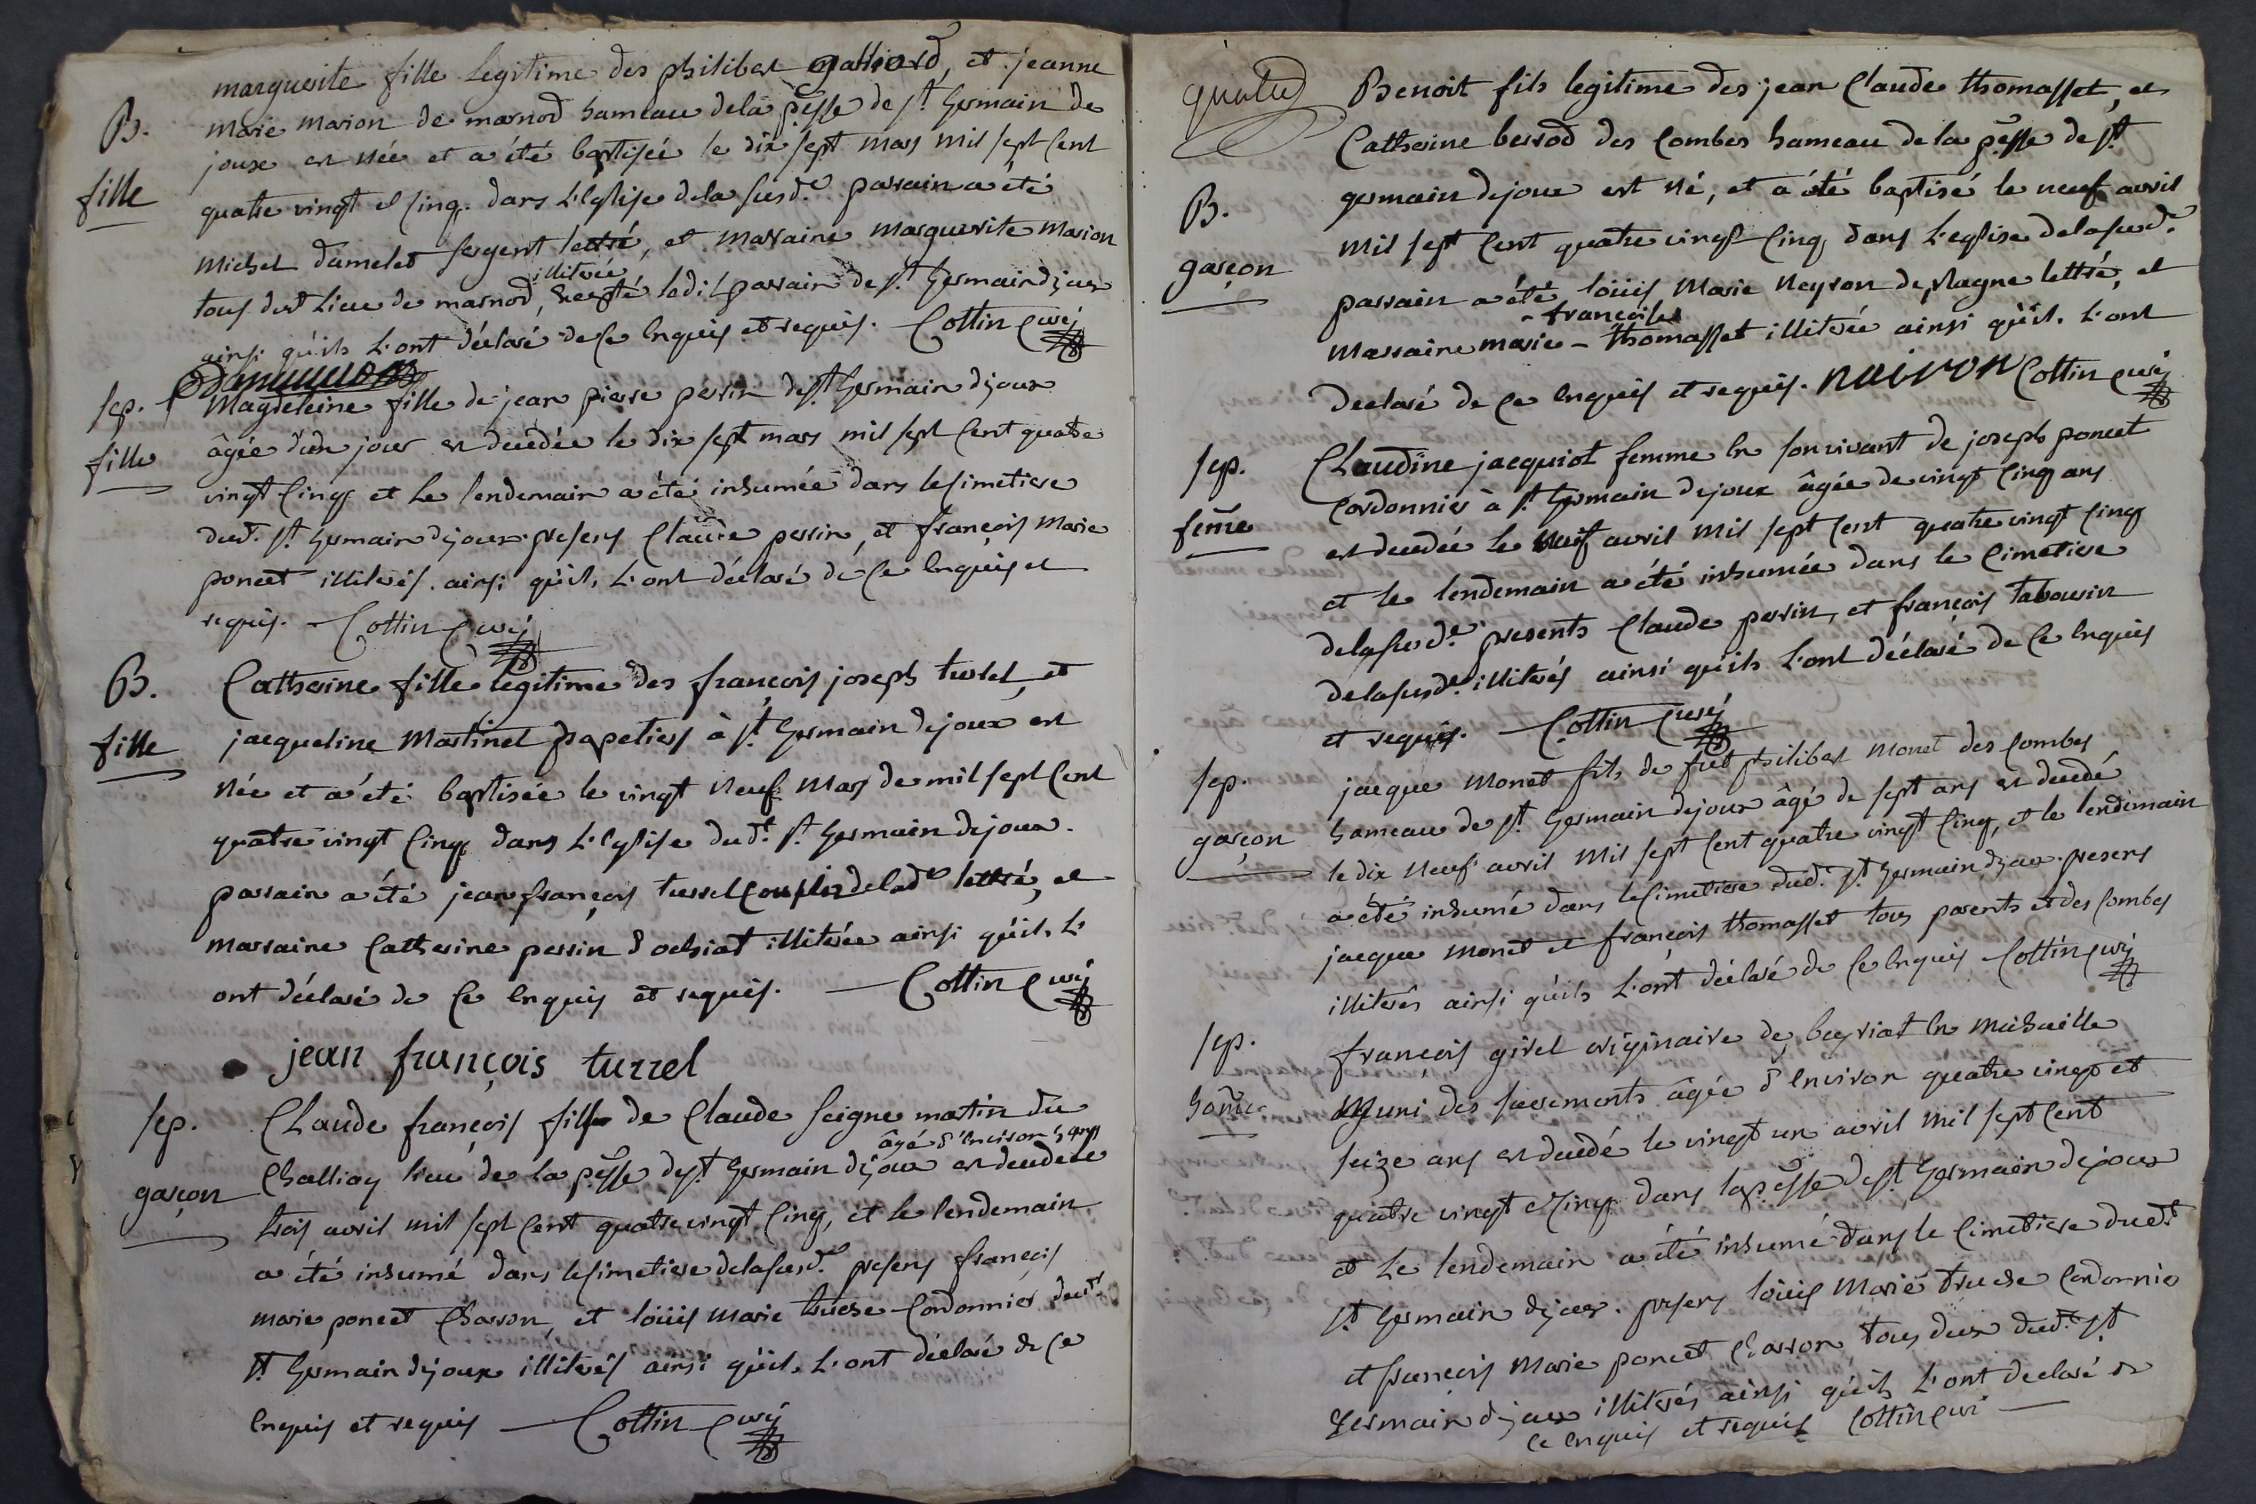 marguerite fille Legitime des philibert gallierd, et jeanne
B.
marie marion de marnod hameau dela psse de st. Germain de
joux est née et a été baptisée le dix sept mars mil sept cent
fille
quatre vingt et cinq. dans L'Eglise dela susd.e parrain a été
michel dumelet sergent lettré, et marraine marguerite marion
illiterée
tous dud lieu de marnod, excepté ledit parrain de st. Germain djoux
ainsi qu'ils L'ont déclaré de ce enquis et requis. Cottin curé
sep.
Magdeleine fille de jean pierre perrin de st Germain djoux
âgée d'un jour est decédée le dix sept mars mil sept cent quatre
fille
vingt cinq et Le lendemain a été inhumée dans le cimetiere
dud. st. Germain dejoux. presens Claude perrin, et françois marie
poncet illiterés. ainsi qu'ils L'ont déclaré de ce enquis et
requis. Cottin curé
B.
Catherine fille legitime des françois joseph turrel, et
fille
jacqueline Martinet papetiers à st Germain dejoux est
née et a été baptisée le vingt neuf mars de mil sept cent
quatre vingt cinq dans L'Eglise dud.t st. Germain dejoux.
parrain a été jean françois turrel couplir delad.e lettré, et
marraine Catherine perrin d'ochiat illiterée ainsi qu'ils L'
ont déclaré de ce enquis et requis. Cottin curé
jean françois turrel
sep.
Claude françois fils de Claude seigne martin du
âgé d'environ 5 ans
garçon
Challioy lieu de la psse de st. Germain dijoux est decedé le
trois avril mil sept cent quatre vingt cinq, et le lendemain
a été inhumé dans le cimetiere dela susd.e presens françois
marie poncet charron, et loüis marie truche cordonnier dud.t
st. Germain dijoux illiterés ainsi qu'ils L'ont déclaré de ce
enquis et requis Cottin curé
quatre
Benoit fils legitime des jean Claude thomasset, et
Catherine berrod des combes hameau de la psse de st.
B.
germain dejoux est né, et a été baptisé le neuf avril
garçon
mil sept cent quatre vingt cinq dans L'eglise dela susd.e
parrain a été loüis marie neyron de plagne lettré, et
françoise
marraine marie - thomasset illiterée ainsi qu'ils L'ont
declaré de ce enquis et requis. neiron Cottin curé
sep.
Claudine jacquiot femme en son vivant de joseph poncet
cordonnier à st. Germain dejoux âgée de vingt cinq ans
feme
est decedée le neuf avril mil sept cent quatre vingt cinq
et le lendemain a été inhumée dans le cimetiere
dela susd.e presents Claude perrin, et françois tabourin
dela susd.e illiterés ainsi qu'ils L'ont déclaré de ce enquis
et requis. Cottin curé
sep.
jacque monet fils de fut philibert monet des combes
garçon
hameau de st. Germain dejoux âgé de sept ans est decedé
le dix neuf avril mil sept cent quatre vingt cinq, et le lendemain
a été inhumé dans le cimetiere dud.t st. Germain djoux. presens
jacque monet et françois thomasset tous parents et des combes
illiterés ainsi qu'ils L'ont déclaré de ce enquis Cottin curé
sep.
françois girel originaire de beyriat en michaille
home
muni des sacrements âgée d'environ quatre vingt et
seize ans est decedé le vingt un avril mil sept cent
quatre vingt cinq dans la psse de st. Germain dejoux
et le lendemain a été inhumé dans le cimetiere dud.t
st. Germain djoux. presens loüis marie truche cordonnier
et françois marie poncet charron tous deux dud.t st.
germain djoux illiterés ainsi qu'ils L'ont declaré de
ce enquis et requis Cottin curé